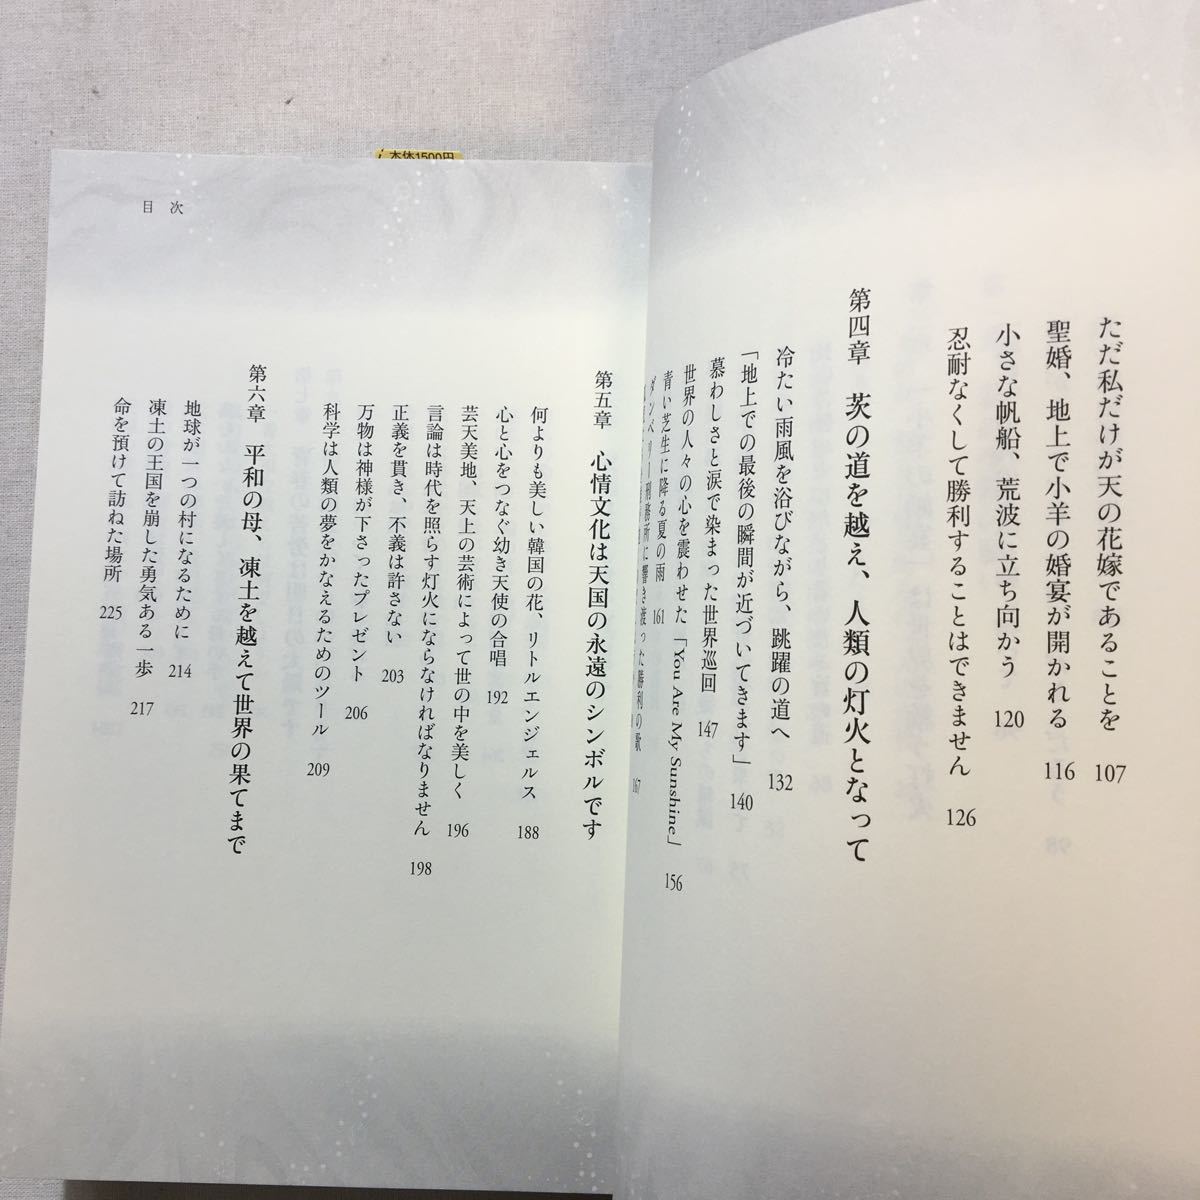 本体1500円
ただ私だけが天の花嫁であることを 107
聖婚、地上で小羊の婚宴が開かれる 116
小さな帆船、荒波に立ち向かう 120
忍耐なくして勝利することはできません 126
第四章 茨の道を越え、人類の灯火となって
冷たい雨風を浴びながら、跳躍の道へ 132
「地上での最後の瞬間が近づいてきます」 140
慕わしさと涙で染まった世界巡回 147
世界の人々の心を震わせた「You Are My Sunshine」 156
青い芝生に降る夏の雨 161
ダンベリー刑務所に響き渡った勝利の歌 167
目次
第五章 心情文化は天国の永遠のシンボルです
何よりも美しい韓国の花、リトルエンジェルス 188
心と心をつなぐ幼き天使の合唱 192
芸天美地、天上の芸術によって世の中を美しく 196
言論は時代を照らす灯火にならなければなりません 198
正義を貫き、不義は許さない 203
万物は神様が下さったプレゼント 206
科学は人類の夢をかなえるためのツール 209
第六章 平和の母、凍土を越えて世界の果てまで
地球が一つの村になるために 214
凍土の王国を崩した勇気ある一歩 217
命を預けて訪ねた場所 225